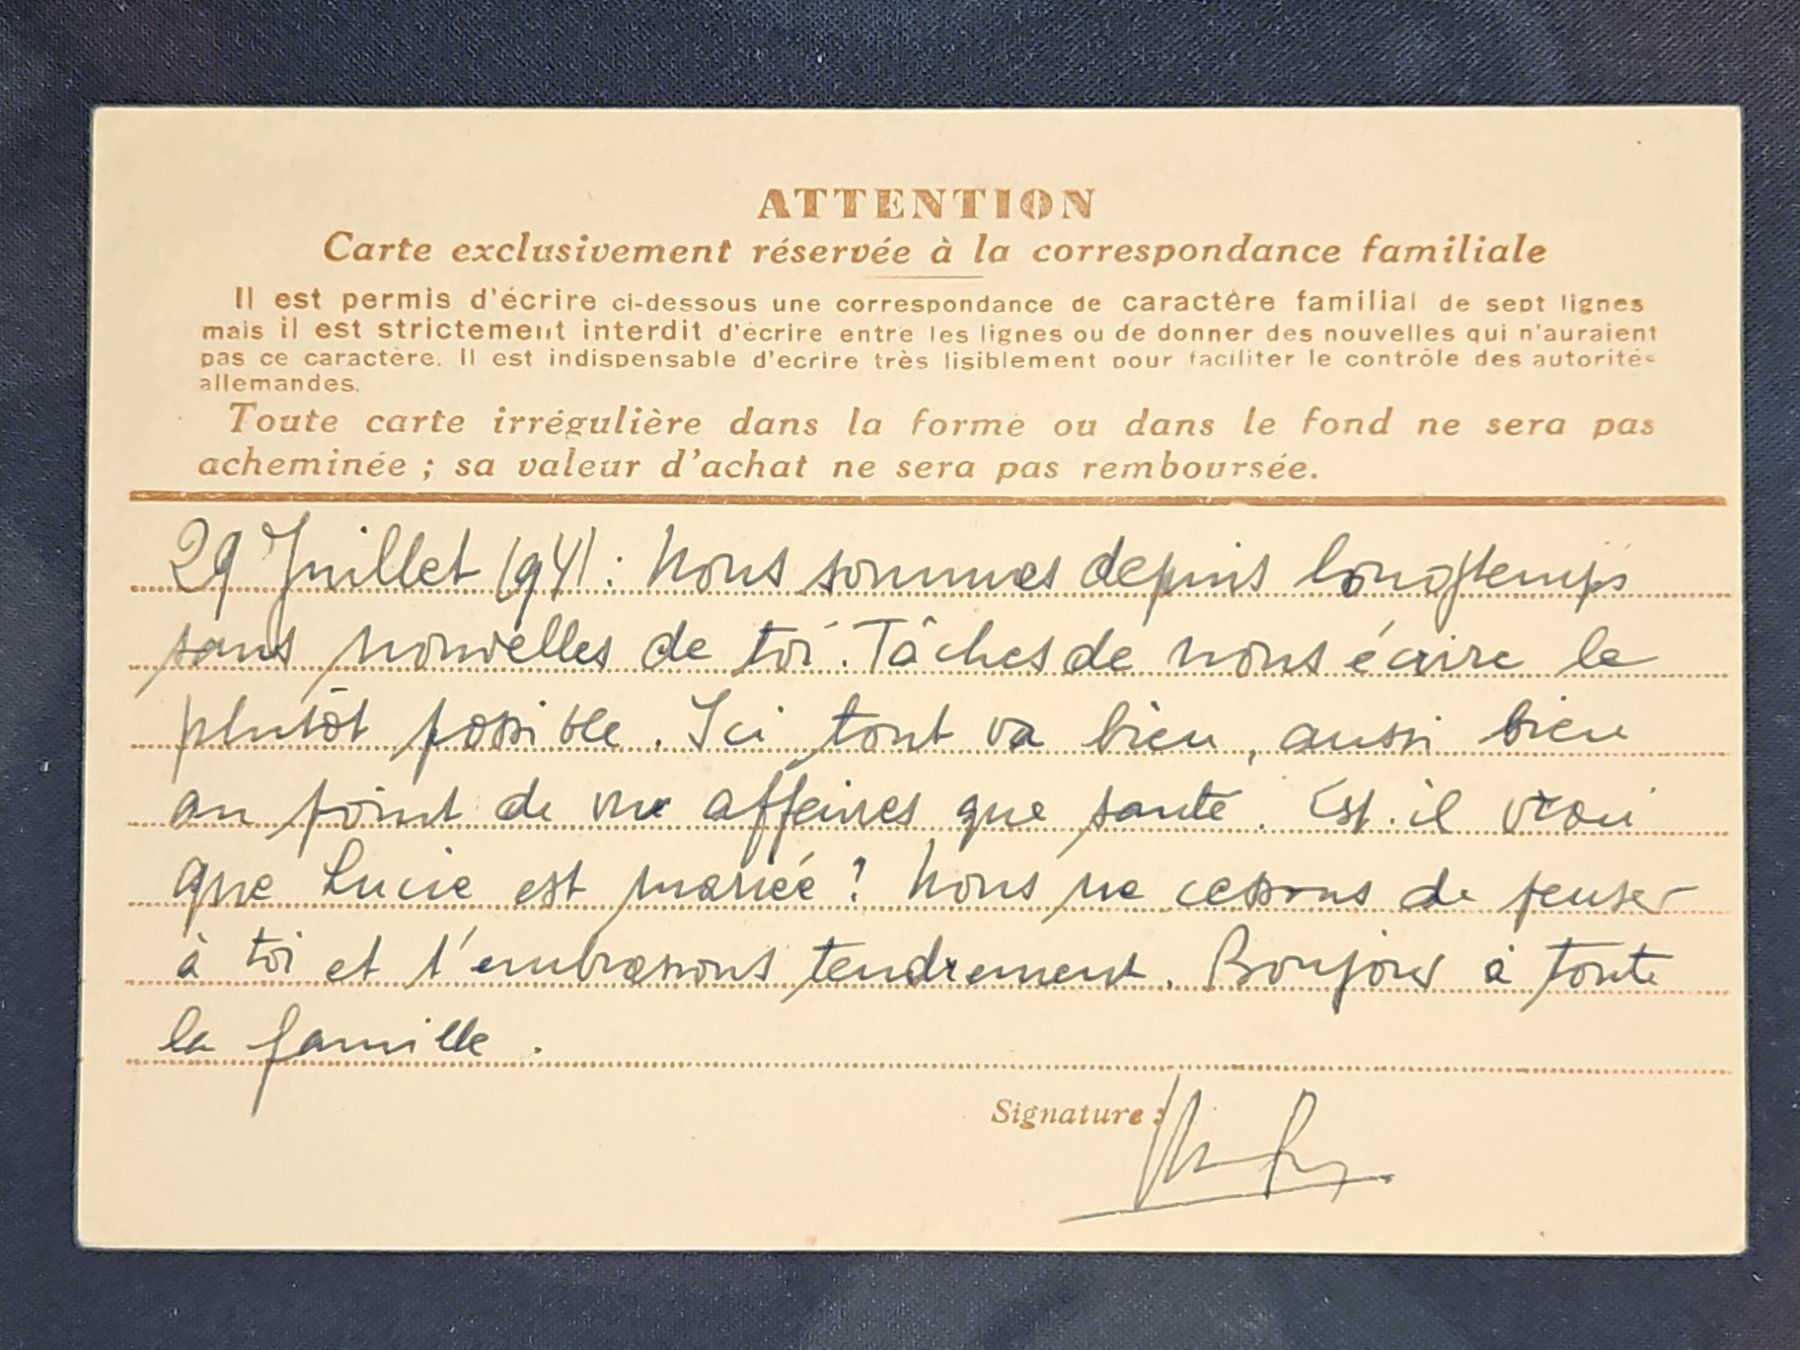 ATTENTION
Carte exclusivement réservée à la correspondance familiale
Il est permis d'écrire ci-dessous une correspondance de caractère familial de sept lignes
mais il est strictement interdit d'écrire entre les lignes ou de donner des nouvelles qui n'auraient
pas ce caractère. Il est indispensable d'ecrire très lisiblement pour faciliter le contrôle des autorités
allemandes.
Toute carte irrégulière dans la forme ou dans le fond ne sera pas
acheminée ; sa valeur d'achat ne sera pas remboursée.
29 Juillet 1941 : Nous sommes depuis longtemps
sans nouvelles de toi. Tâches de nous écrire le
plutôt possible. Ici tout va bien, aussi bien
au point de vue affaires que santé. Est-il vrai
que Lucie est mariée ? Nous ne cessons de penser
à toi et t'embrassons tendrement. Bonjour à toute
la famille.
Signature :